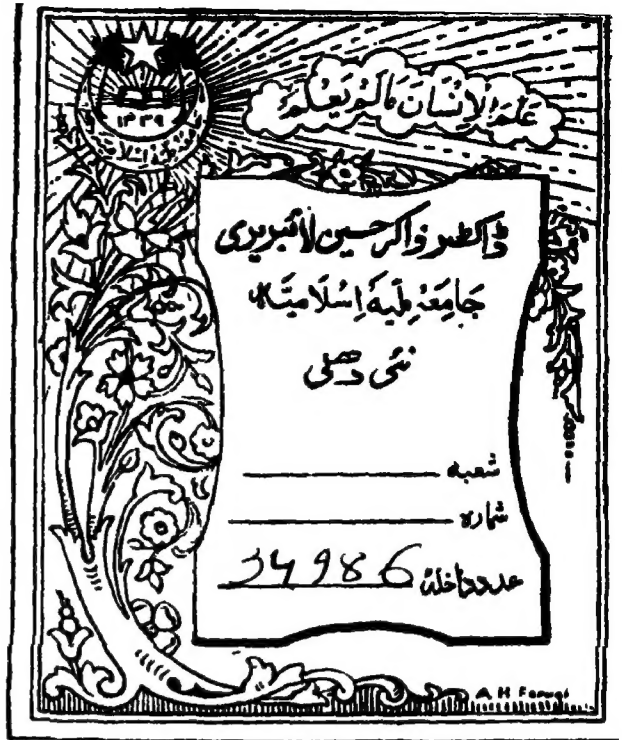 عَلَّمَ الْاِنْسَانَ مَا لَمْ يَعْلَمْ
۱۳۳۹
ڈاکٹر ذاکر حسین لائبریری
جَامِعَہ مِلّیہ اِسْلَامِیَّہ
نئی دھلی
شعبہ
شمارہ
عدد داخلہ 34986
A H Faruqi